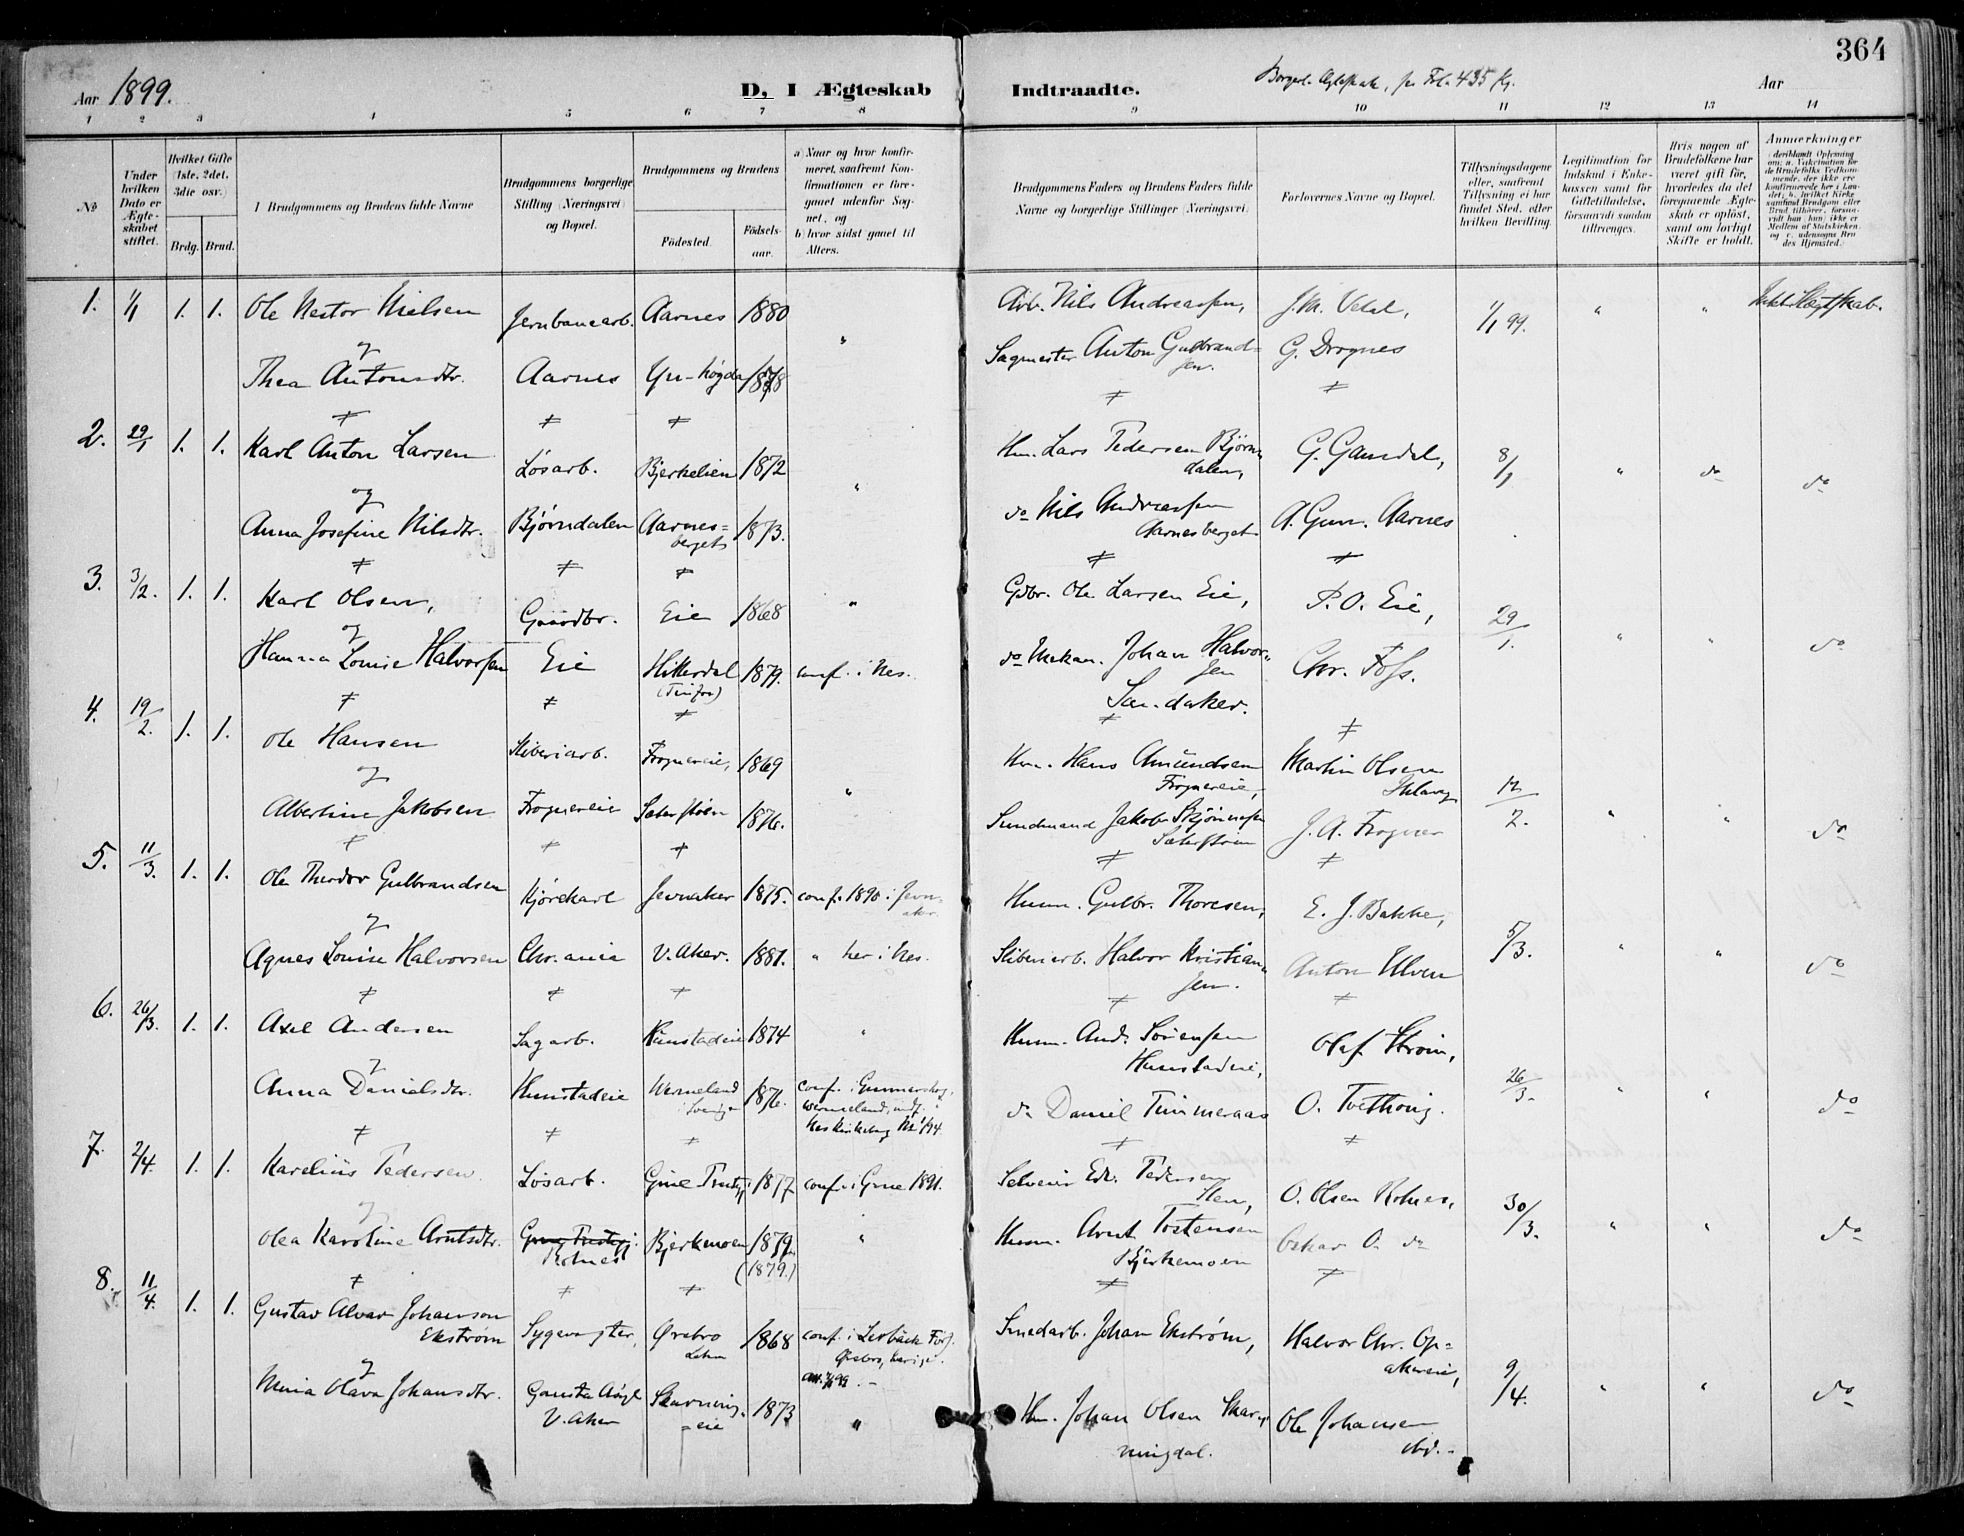 364
Aar 1899.
D, I Ægteskab Indtraadte.
Borgerl. Ægteskab, se Fol. 435 flg.
Aar
1 2 3 4 5 6 7 8 9 10 11 12 13 14
No
Under hvilken Dato er Ægteskabet stiftet.
Hvilket Gifte (1ste, 2det, 3die osv.)
Brdg. Brud.
1 Brudgommens og Brudens fulde Navne
Brudgommens borgerlige Stilling (Næringsvei) og Bopæl.
Brudgommens og Brudens
Fødested.
Fødselsaar.
a) Naar og hvor konfirmeret, saafremt Konfirmationen er foregaaet udenfor Sognet, og
b) hvor sidst gaaet til Alters.
Brudgommens Faders og Brudens Faders fulde Navne og borgerlige Stillinger (Næringsvei).
Forlovernes Navne og Bopæl.
Tillysningsdagene eller, saafremt Tillysning ei har fundet Sted, efter hvilken Bevilling.
Legitimation for Indskud i Enkekassen samt for Giftetilladelse, forsaavidt saadan tiltrænges.
Hvis nogen af Brudefolkene har været gift før, hvorledes da det foregaaende Ægteskab er opløst, samt om lovligt Skifte er holdt.
Anmerkninger
1. 1/1 1. 1. Ole Nestor Nielsen Jernbanearb. Aarnes 1880 " Arb. Nils Andreassen, J. M. Vetal, 1/1 99. " " Ikke Slægtskab.
og
Thea Antonsdtr. Aarnes 1878 Sagmester Anton Gulbrandsen. G. Drognes
2. 29/1 1. 1. Karl Anton Larsen Løsarb. Bjerkelien 1872 " Hm. Lars Pedersen Bjørndalen, G. Gamdal, 8/1 " do do
og
Anna Josefine Nilsdtr. Bjørndalen Aarnesberget 1873. do Nils Andreassen Aarnesberget A. Gun. Aarnes
3. 3/2. 1. 1. Karl Olsen, Gaardbr. Eie 1868 " Gdbr. Ole Larsen Eie, P. O. Eie, 29/1. " " do
og
Hanna Louise Halvorsen Eie Hitterdal 1879. conf. i Nes. do Mekan. Johan Halvorsen Chr. Foss.
Sandaker.
4. 19/2. 1. 1. Ole Hansen Sliberiarb. Frognereie, 1869 " Hm. Hans Amundsen Frognereie, Martin Olsen 12/2. " " do
og
Albertine Jakobsen Frognereie Sæterstøen 1876. Sundmand Jakob Sæterstøen J. A. Frogner
5. 11/3. 1. 1. Ole Theodor Gulbrandsen Kjørekarl Jevnaker 1875. conf. 1890 i Jevnaker. Husm. Gulbr. Thoresen, E. J. Bakke, 5/3. " " do
og
Agnes Louise Halvorsen Chr.ania V. Aker. 1881. " her i Nes. Sliberiarb. Halvor Kristiansen. Anton Ulven
6. 26/3. 1. 1. Axel Andersen Sagarb. Hunstadeie 1874 " Husm. And. Sørensen Hunstadeie, Olaf Strøm, 26/3. " " do
og
Anna Danielsdtr. Hunstadeie Wermeland Sverige 1876. conf. i Gunnarskog, Wermeland, indf. i do Daniel Timmeraas O. Tvethoug.
7. 2/4. 1. 1. Karelius Pedersen Løsarb. Grue 1877 conf. i Grue 1891. Selveier Edv. Pedersen O. Olsen Rolnes, 30/3. " " do
og
Olea Karoline Arntsdtr. Rolnes Bjerkmoen 1879. (1879.) " Husm. Arnt Tostensen Bjerkemoen Oskar O. do
8. 11/4. 1. 1. Gustav Alvar Johanson Ekstrøm Sygevogter, Ørebro Lehn 1868 conf. i Lerbäck Fors. Ørebro, Sverige. Smedarb. Johan Ekstrøm, Halvor Chr. Opakereie, 9/4. " " do
og
Mina Olava Johansdtr. Gausta Asyl V. Aker Skarningeie 1873 " Hm. Johan Olsen Skarningdal. Ole Johansen ibd.